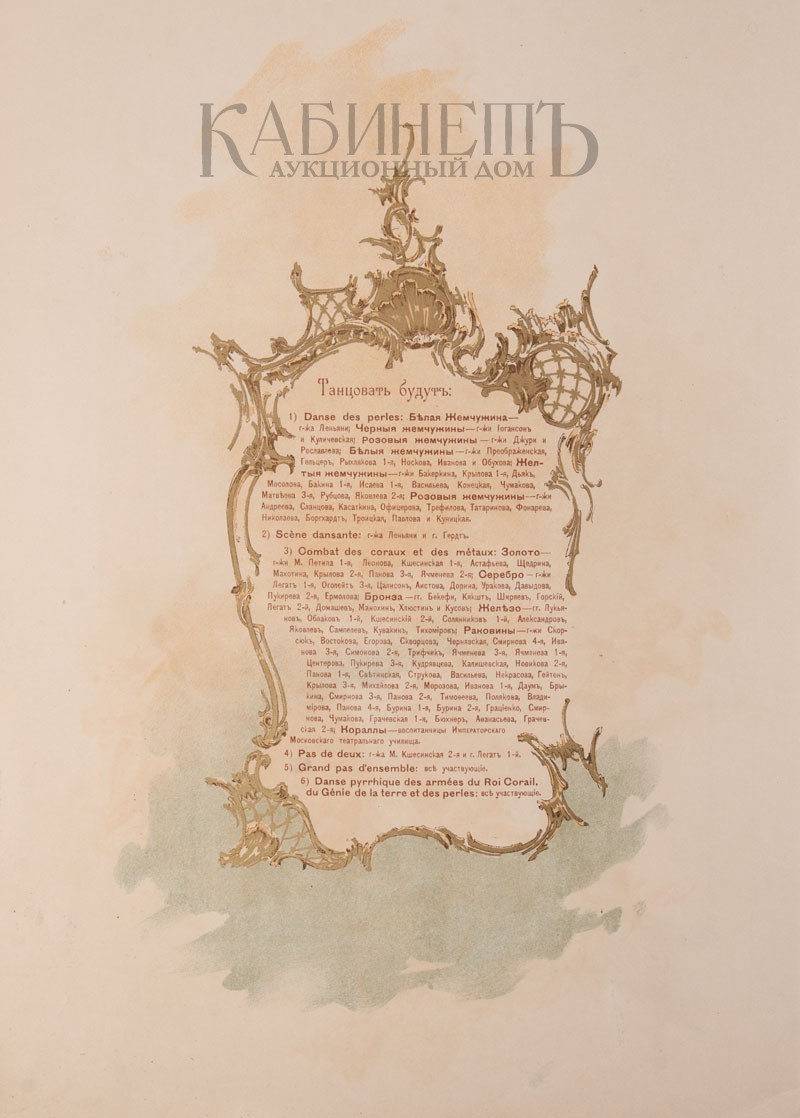 КАБИНЕТЪ
АУКЦИОННЫЙ ДОМ
Танцовать будутъ:
1) Danse des perles: Бѣлая Жемчужина—
г-жа Леньяни; Черныя жемчужины—г-жи Іогансонъ
и Куличевская; Розовыя жемчужины—г-жи Джури и
Рославлева; Бѣлыя жемчужины—г-жи Преображенская,
Гельцеръ, Рыхлякова 1-я, Носкова, Иванова и Обухова; Жел-
тыя жемчужины—г-жи Бакеркина, Крылова 1-я, Дьякъ,
Мосолова, Бакина 1-я, Исаева 1-я, Васильева, Конецкая, Чумакова,
Матвѣева 3-я, Рубцова, Яковлева 2-я; Розовыя жемчужины—г-жи
Андреева, Сланцова, Касаткина, Офицерова, Трефилова, Татаринова, Фонарева,
Николаева, Боргхардтъ, Троицкая, Павлова и Куницкая.
2) Scène dansante: г-жа Леньяни и г. Гердтъ.
3) Combat des coraux et des métaux: Золото—
г-жи М. Петипа 1-я, Леонова, Кшесинская 1-я, Астафьева, Щедрина,
Махотина, Крылова 2-я, Панова 3-я, Ячменева 2-я; Серебро—г-жи
Легатъ 1-я, Оголейтъ 3-я, Цалисонъ, Аистова, Дорина, Уракова, Давыдова,
Пукирева 2-я, Ермолова; Бронза—гг. Бекефи, Кякштъ, Ширяевъ, Горскій,
Легатъ 2-й, Домашевъ, Манохинъ, Хлюстинъ и Кусовъ; Желѣзо—гг. Лукья-
новъ, Облаковъ 1-й, Кшесинскій 2-й, Солянниковъ 1-й, Александровъ,
Яковлевъ, Сампелевъ, Кувакинъ, Тихоміровъ; Раковины—г-жи Скор-
сюкъ, Востокова, Егорова, Скворцова, Чернявская, Смирнова 4-я, Ива-
нова 3-я, Симонова 2-я, Трифчикъ, Ячменева 3-я, Ячменева 1-я,
Центерова, Пукирева 3-я, Кудрявцева, Калишевская, Новикова 2-я,
Панова 1-я, Свѣтинская, Струкова, Васильева, Некрасова, Гейтенъ,
Крылова 3-я, Михайлова 2-я, Морозова, Иванова 1-я, Даумъ, Бры-
кина, Смирнова 3-я, Панова 2-я, Тимонеева, Полякова, Влади-
мірова, Панова 4-я, Бурина 1-я, Бурина 2-я, Граціенко, Смир-
нова, Чумакова, Грачевская 1-я, Бюхнеръ, Аѳанасьева, Грачев-
ская 2-я; Кораллы—воспитанницы Императорскаго
Московскаго театральнаго училища.
4) Pas de deux: г-жа М. Кшесинская 2-я и г. Легатъ 1-й.
5) Grand pas d'ensemble: всѣ участвующіе.
6) Danse pyrrhique des armées du Roi Corail,
du Génie de la terre et des perles: всѣ участвующіе.